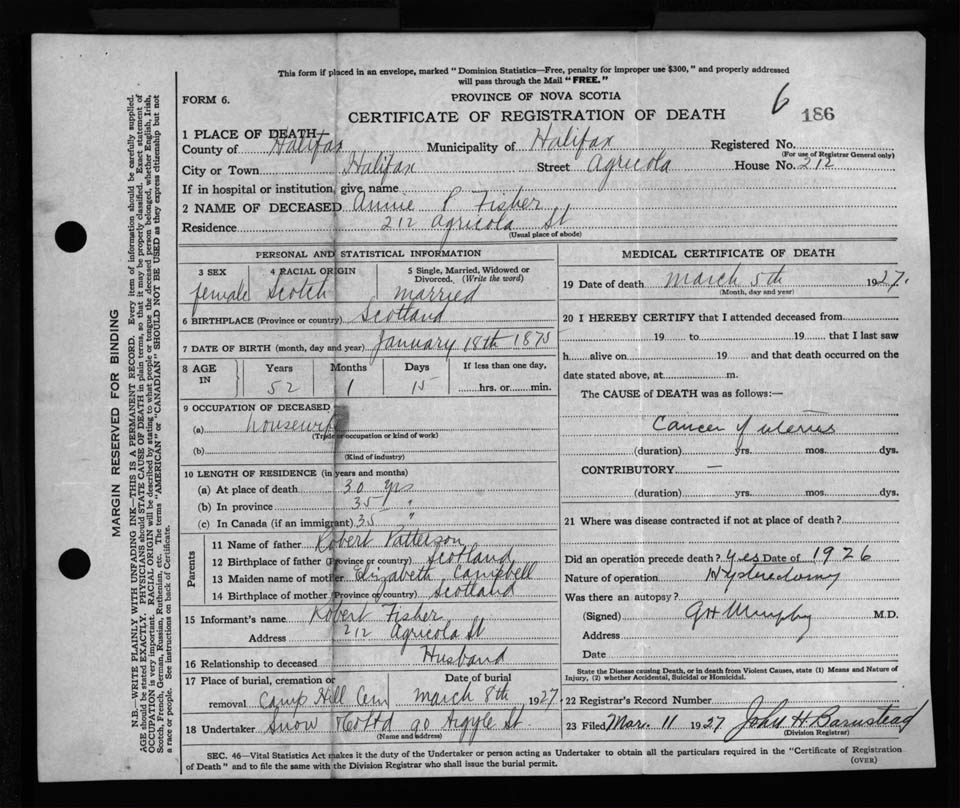 This form if placed in an envelope, marked "Dominion Statistics—Free, penalty for improper use $300," and properly addressed
will pass through the Mail "FREE."
FORM 6.
PROVINCE OF NOVA SCOTIA
CERTIFICATE OF REGISTRATION OF DEATH
6
186
1 PLACE OF DEATH
County of Halifax Municipality of Halifax Registered No.
(For use of Registrar General only)
City or Town Halifax Street Agricola House No. 212
If in hospital or institution, give name
2 NAME OF DECEASED Annie P Fisher
Residence 212 Agricola St
(Usual place of abode)
PERSONAL AND STATISTICAL INFORMATION
3 SEX 4 RACIAL ORIGIN 5 Single, Married, Widowed or
Divorced. (Write the word)
female Scotch married
6 BIRTHPLACE (Province or country) Scotland
7 DATE OF BIRTH (month, day and year) January 18th 1875
8 AGE Years Months Days If less than one day,
IN 52 1 15 hrs. or min.
9 OCCUPATION OF DECEASED
(a) housewife
(Trade or occupation or kind of work)
(b)
(Kind of industry)
10 LENGTH OF RESIDENCE (in years and months)
(a) At place of death 30 yrs
(b) In province 35 "
(c) In Canada (if an immigrant) 35 "
Parents
11 Name of father Robert Patterson
12 Birthplace of father (Province or country) Scotland
13 Maiden name of mother Elizabeth Campbell
14 Birthplace of mother (Province or country) Scotland
15 Informant's name Robert Fisher
Address 212 Agricola St
16 Relationship to deceased Husband
17 Place of burial, cremation or Date of burial
removal Camp Hill Cem March 8th 1927
18 Undertaker Snow & Co Ltd 90 Argyle St.
(Name and address)
MEDICAL CERTIFICATE OF DEATH
19 Date of death March 5th 1927.
(Month, day and year)
20 I HEREBY CERTIFY that I attended deceased from
19 to 19 that I last saw
h alive on 19 and that death occurred on the
date stated above, at m.
The CAUSE of DEATH was as follows:—
Cancer of uterus
(duration) yrs. mos. dys.
CONTRIBUTORY —
(duration) yrs. mos. dys.
21 Where was disease contracted if not at place of death?
Did an operation precede death? yes Date of 1926
Nature of operation Hysterectomy
Was there an autopsy?
(Signed) G H Murphy M.D.
Address
Date
State the Disease causing Death, or in death from Violent Causes, state (1) Means and Nature of
Injury, (2) whether Accidental, Suicidal or Homicidal.
22 Registrar's Record Number
23 Filed Mar. 11 1927 John H Barnstead
(Division Registrar)
SEC. 46—Vital Statistics Act makes it the duty of the Undertaker or person acting as Undertaker to obtain all the particulars required in the "Certificate of Registration
of Death" and to file the same with the Division Registrar who shall issue the burial permit.
(OVER)
MARGIN RESERVED FOR BINDING
N.B.—WRITE PLAINLY WITH UNFADING INK—THIS IS A PERMANENT RECORD. Every item of information should be carefully supplied.
AGE should be stated EXACTLY. PHYSICIANS should STATE CAUSE OF DEATH in plain terms, so that it may be properly classified. Exact statement of
OCCUPATION is very important. RACIAL ORIGIN will be described by stating to what people or tongue the deceased person belonged, whether English, Irish,
Scotch, French, German, Russian, Ruthenian, etc. The terms "AMERICAN" or "CANADIAN" SHOULD NOT BE USED as they express citizenship but not
a race or people. See instructions on back of Certificate.